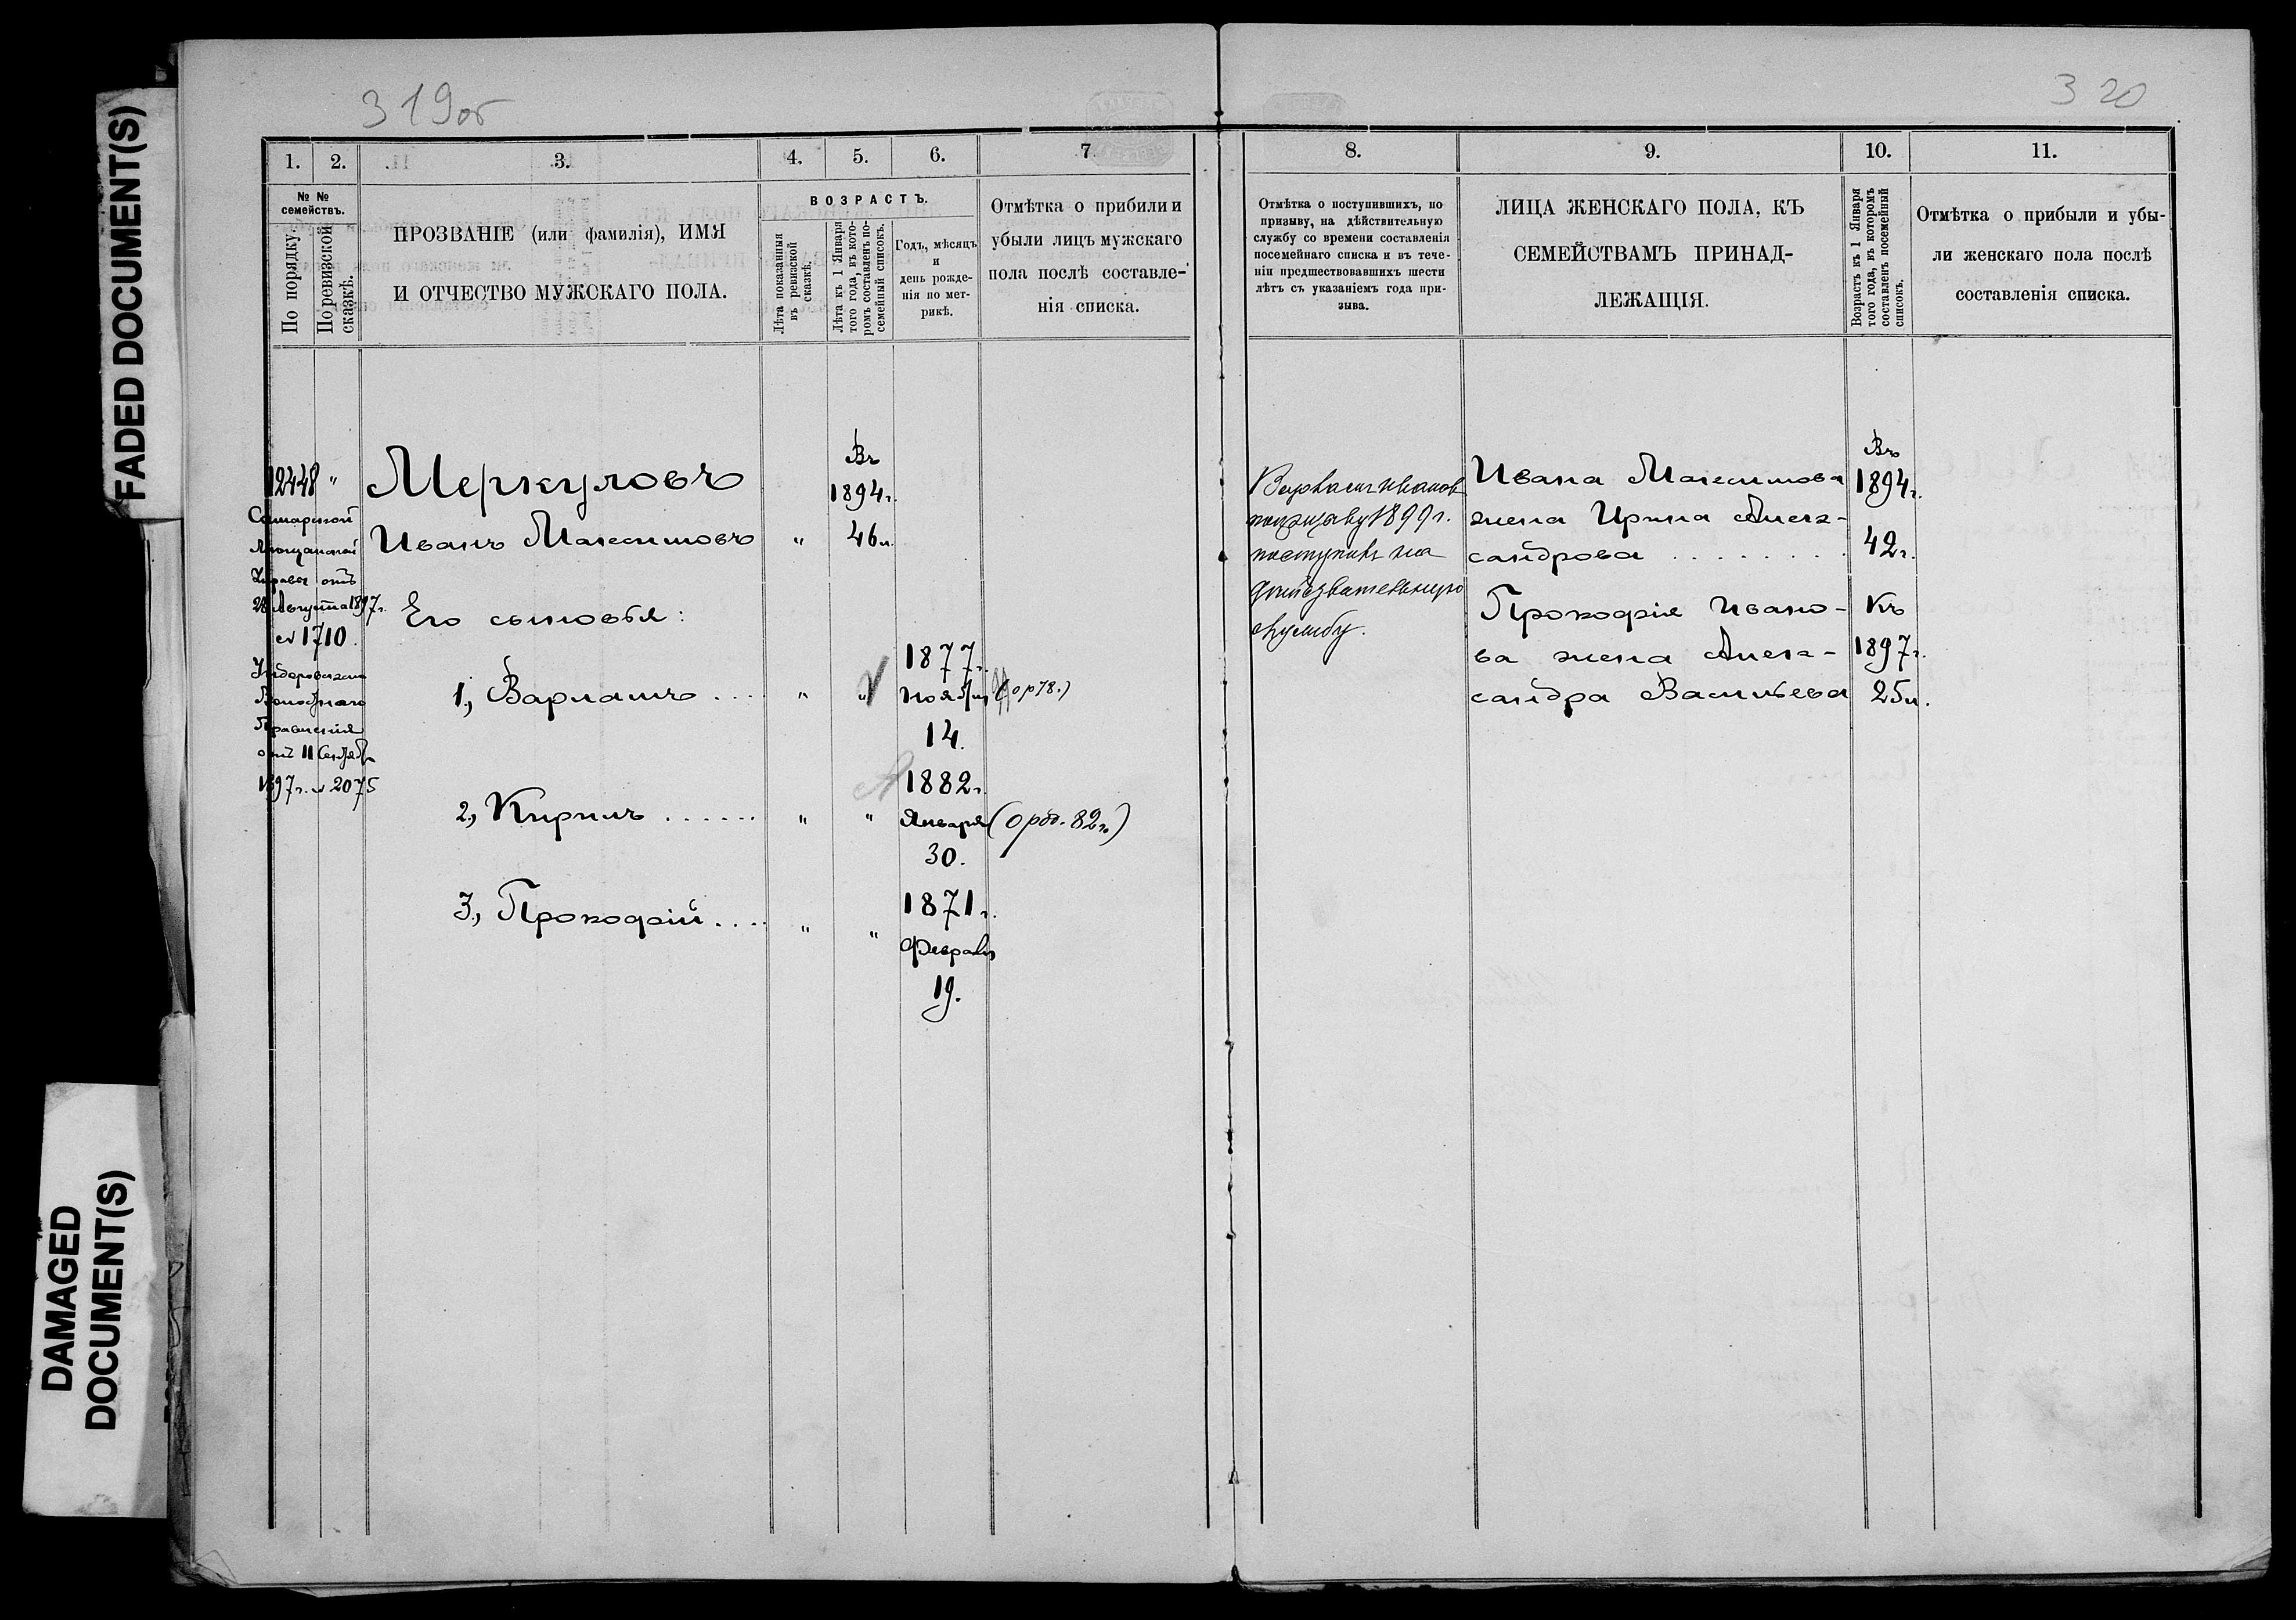 FADED DOCUMENT(S)
DAMAGED
DOCUMENT(S)
319об
1.
2.
3.
4.
5.
6.
7.
№ №
семействъ.
По порядку.
По ревизской
сказкѣ.
ПРОЗВАНІЕ (или фамилія), ИМЯ
И ОТЧЕСТВО МУЖСКАГО ПОЛА.
ВОЗРАСТЪ.
Лѣта показанныя
въ ревизской
сказкѣ.
Лѣта къ 1 Января
того года, въ кото-
ромъ составленъ по-
семейный списокъ.
Годъ, мѣсяцъ
и
день рожде-
нія по мет-
рикѣ.
Отмѣтка о прибили и
убыли лицъ мужскаго
пола послѣ составле-
нія списка.
12448 "
Самарской
Мѣщанской
Управы отъ
28 Августа 1897г.
№ 1710.
Волостнаго
Правленія
отъ 11 Сентяб
1897г. № 2075
Меркуловъ
Въ
1894г.
Иванъ Максимовъ " 46л.
Его сыновья:
1, Варламъ .... " "
1877г.
Ноября
14.
(ор78.)
2, Кирилъ ...... " "
1882г.
Января
30.
(орд. 82г.)
3, Прокофій .... " "
1871г.
Февраля
19.
320
8.
9.
10.
11.
Отмѣтка о поступившихъ, по
призыву, на дѣйствительную
службу со времени составленія
посемейнаго списка и въ тече-
ніи предшествовавшихъ шести
лѣтъ съ указаніемъ года при-
зыва.
ЛИЦА ЖЕНСКАГО ПОЛА, КЪ
СЕМЕЙСТВАМЪ ПРИНАД-
ЛЕЖАЩІЯ.
Возрастъ къ 1 Января
того года, въ которомъ
составленъ посемейный
списокъ.
Отмѣтка о прибыли и убы-
ли женскаго пола послѣ
составленія списка.
Варламъ Иванов
по призыву 1899г.
поступилъ на
дѣйствительную
службу.
Ивана Максимова
жена Ирина Алек-
сандрова ........
Въ
1894г.
42г.
Прокофія Ивано-
ва жена Алек-
сандра Васильева
Къ
1897г.
25л.